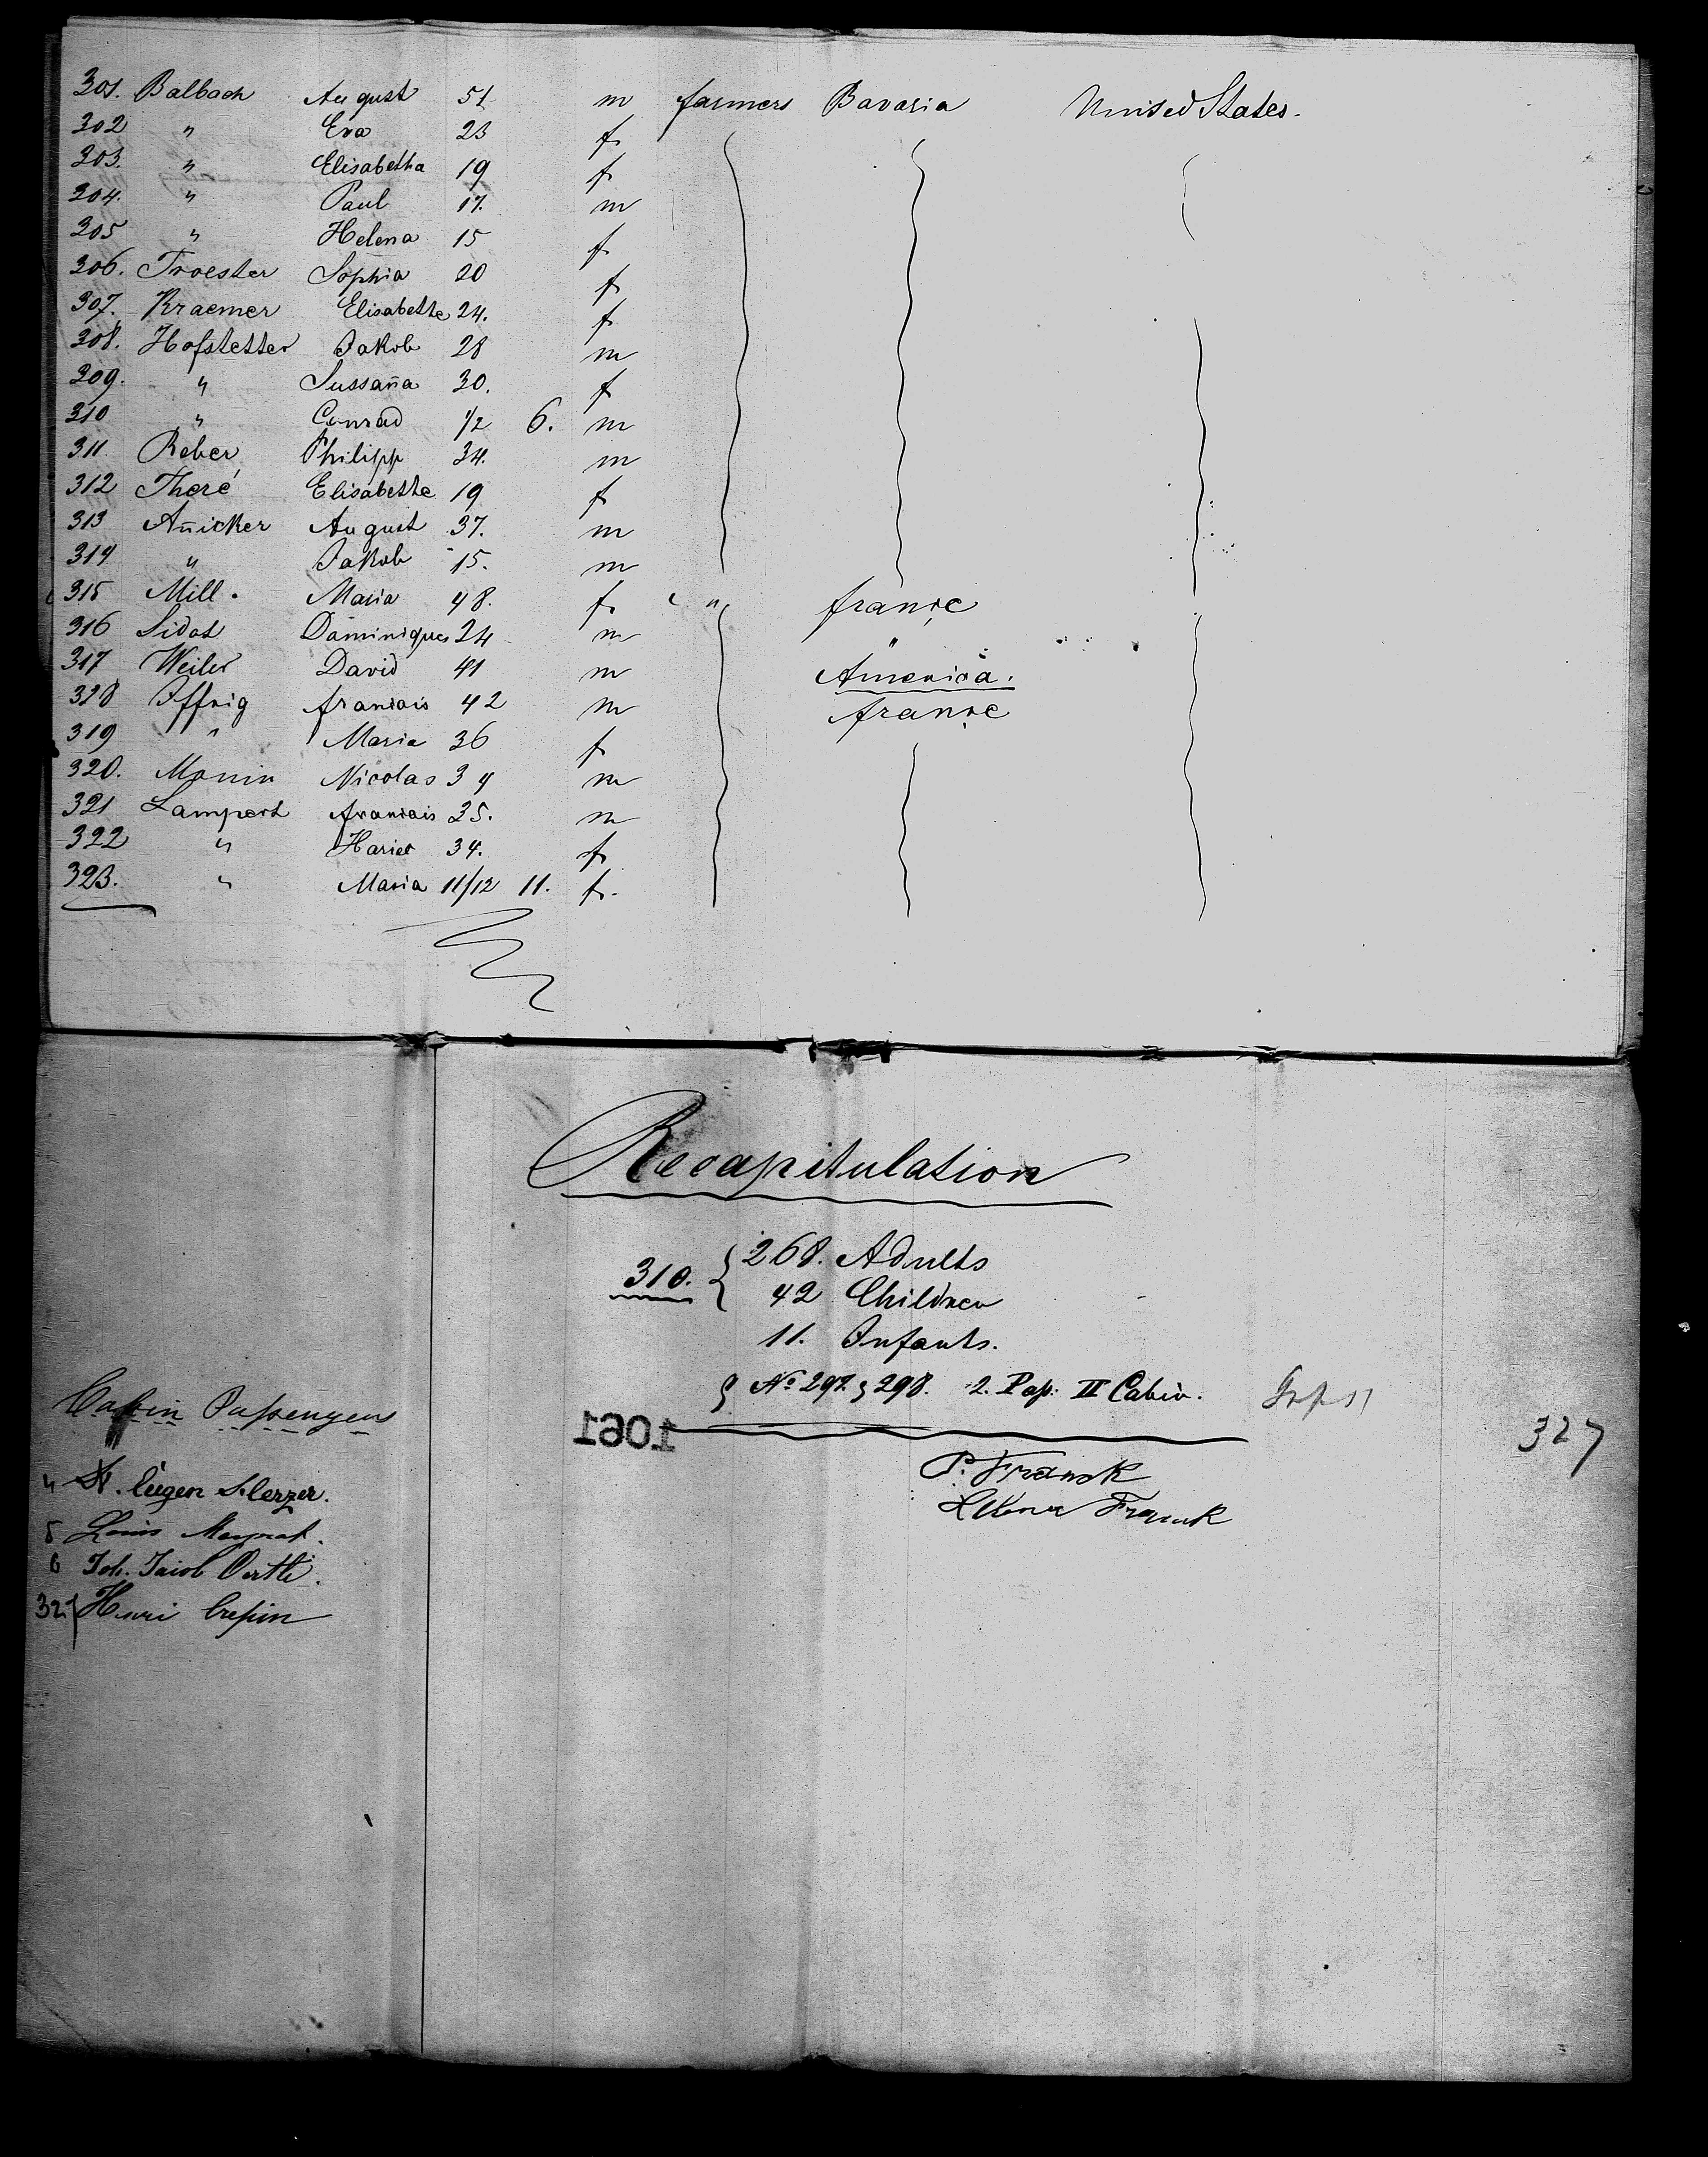 301. Balbach August 51 m farmers Bavaria United States.
302 " Eva 23 f
303. " Elisabetha 19 f
304. " Paul 17. m
305 " Helena 15 f
306. Troester Sophia 20 f
307. Kraemer Elisabethe 24. f
308. Hofstetter Jakob 28 m
309. " Sussan̄a 30. f
310 " Conrad 1/2 6. m
311 Reber Philipp 34. m
312 Theré Elisabethe 19 f
313 An̄icker August 37. m
314 " Jakob 15. m
315 Mill. Maria 48. f " france
316 Sidot Dominiques 24 m "
317 Weiler David 41 m America.
318 Iffrig francais 42 m france
319 " Maria 36 f
320. Monin Nicolas 34 m
321 Lampert francais 35. m
322 " Hariet 34. f
323. " Maria 11/12 11. f.
Recapitulation
310. { 268. Adults
42 Children
11. Infants.
} No 297 & 298. 2. Pass: II Cabin.
327
1061
P. Franck
Franck
Cabin Passengers
4 Eugen
5 Louis
6 Joh. Jacob Oertli.
327 Henri Crepin